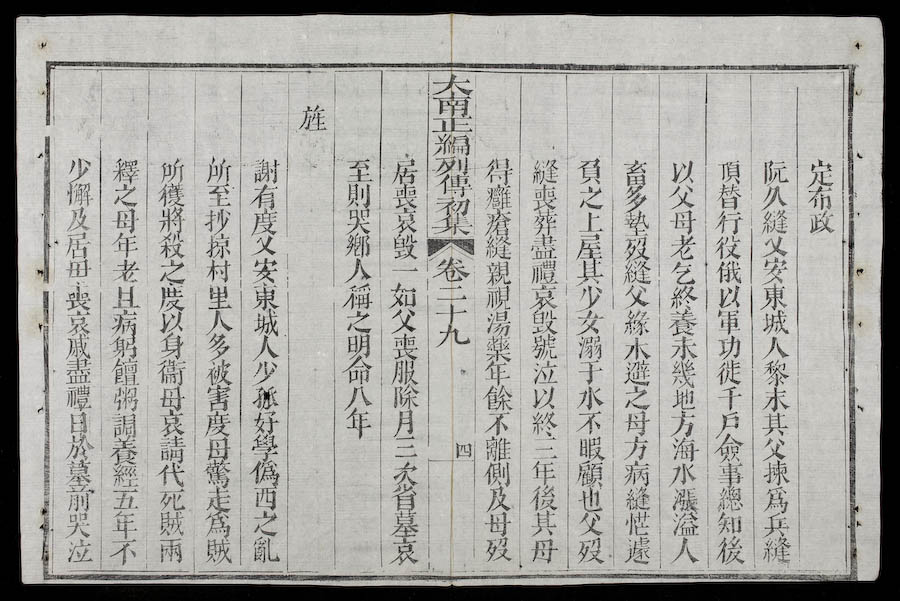 定布政
阮久縫乂安東城人黎末其父揀爲兵縫
頂替行役俄以軍功徙千戶僉事總知後
以父母老乞終養未幾地方海水漲溢人
畜多墊歿縫父緣木避之母方病縫惶遽
負之上屋其少女溺于水不暇顧也父歿
縫喪葬盡禮哀毀號泣以終三年後其母
得癰瘡縫親視湯藥年餘不離側及母歿
大南正編列傳初集 卷二十九 四
居喪哀毀一如父喪服除月三次省墓哀
至則哭鄉人稱之明命八年
旌
謝有度乂安東城人少孤好學僞西之亂
所至抄掠村里人多被害度母驚走爲賊
所獲將殺之度以身衞母哀請代死賊兩
釋之母年老且病躬饘粥調養經五年不
少懈及居母喪哀戚盡禮日於墓前哭泣